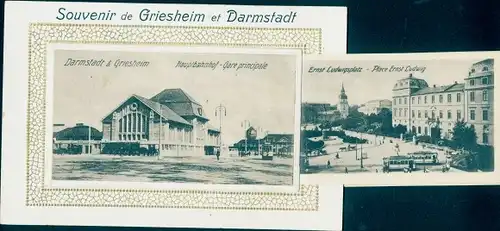 Souvenir de Griesheim et Darmstadt
Darmstadt & Griesheim Hauptbahnhof - Gare principale
Ernst Ludwigsplatz - Place Ernst Ludwig